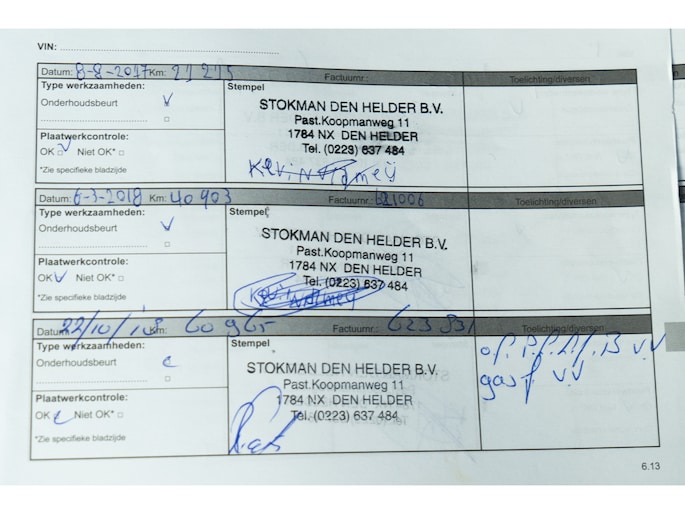 VIN:
Datum: 8-8-2017 Km: 21 275 Factuurnr.: Toelichting/diversen
Type werkzaamheden: Stempel
Onderhoudsbeurt V
STOKMAN DEN HELDER B.V.
Past.Koopmanweg 11
Plaatwerkcontrole: 1784 NX DEN HELDER
OK V Niet OK* Tel. (0223) 637 484
*Zie specifieke bladzijde Kevin
Datum: 6-3-2018 Km: 40 903 Factuurnr.: 621006 Toelichting/diversen
Type werkzaamheden: Stempel
Onderhoudsbeurt V
STOKMAN DEN HELDER B.V.
Past.Koopmanweg 11
Plaatwerkcontrole: 1784 NX DEN HELDER
OK V Niet OK* Tel. (0223) 637 484
*Zie specifieke bladzijde Kevin
Datum: 22/10/18 Km: 60 965 Factuurnr.: 623 331 Toelichting/diversen
Type werkzaamheden: Stempel
Onderhoudsbeurt
STOKMAN DEN HELDER B.V.
Past.Koopmanweg 11
Plaatwerkcontrole: 1784 NX DEN HELDER
OK Niet OK* Tel. (0223) 637 484
*Zie specifieke bladzijde
V.V
V.V
6.13